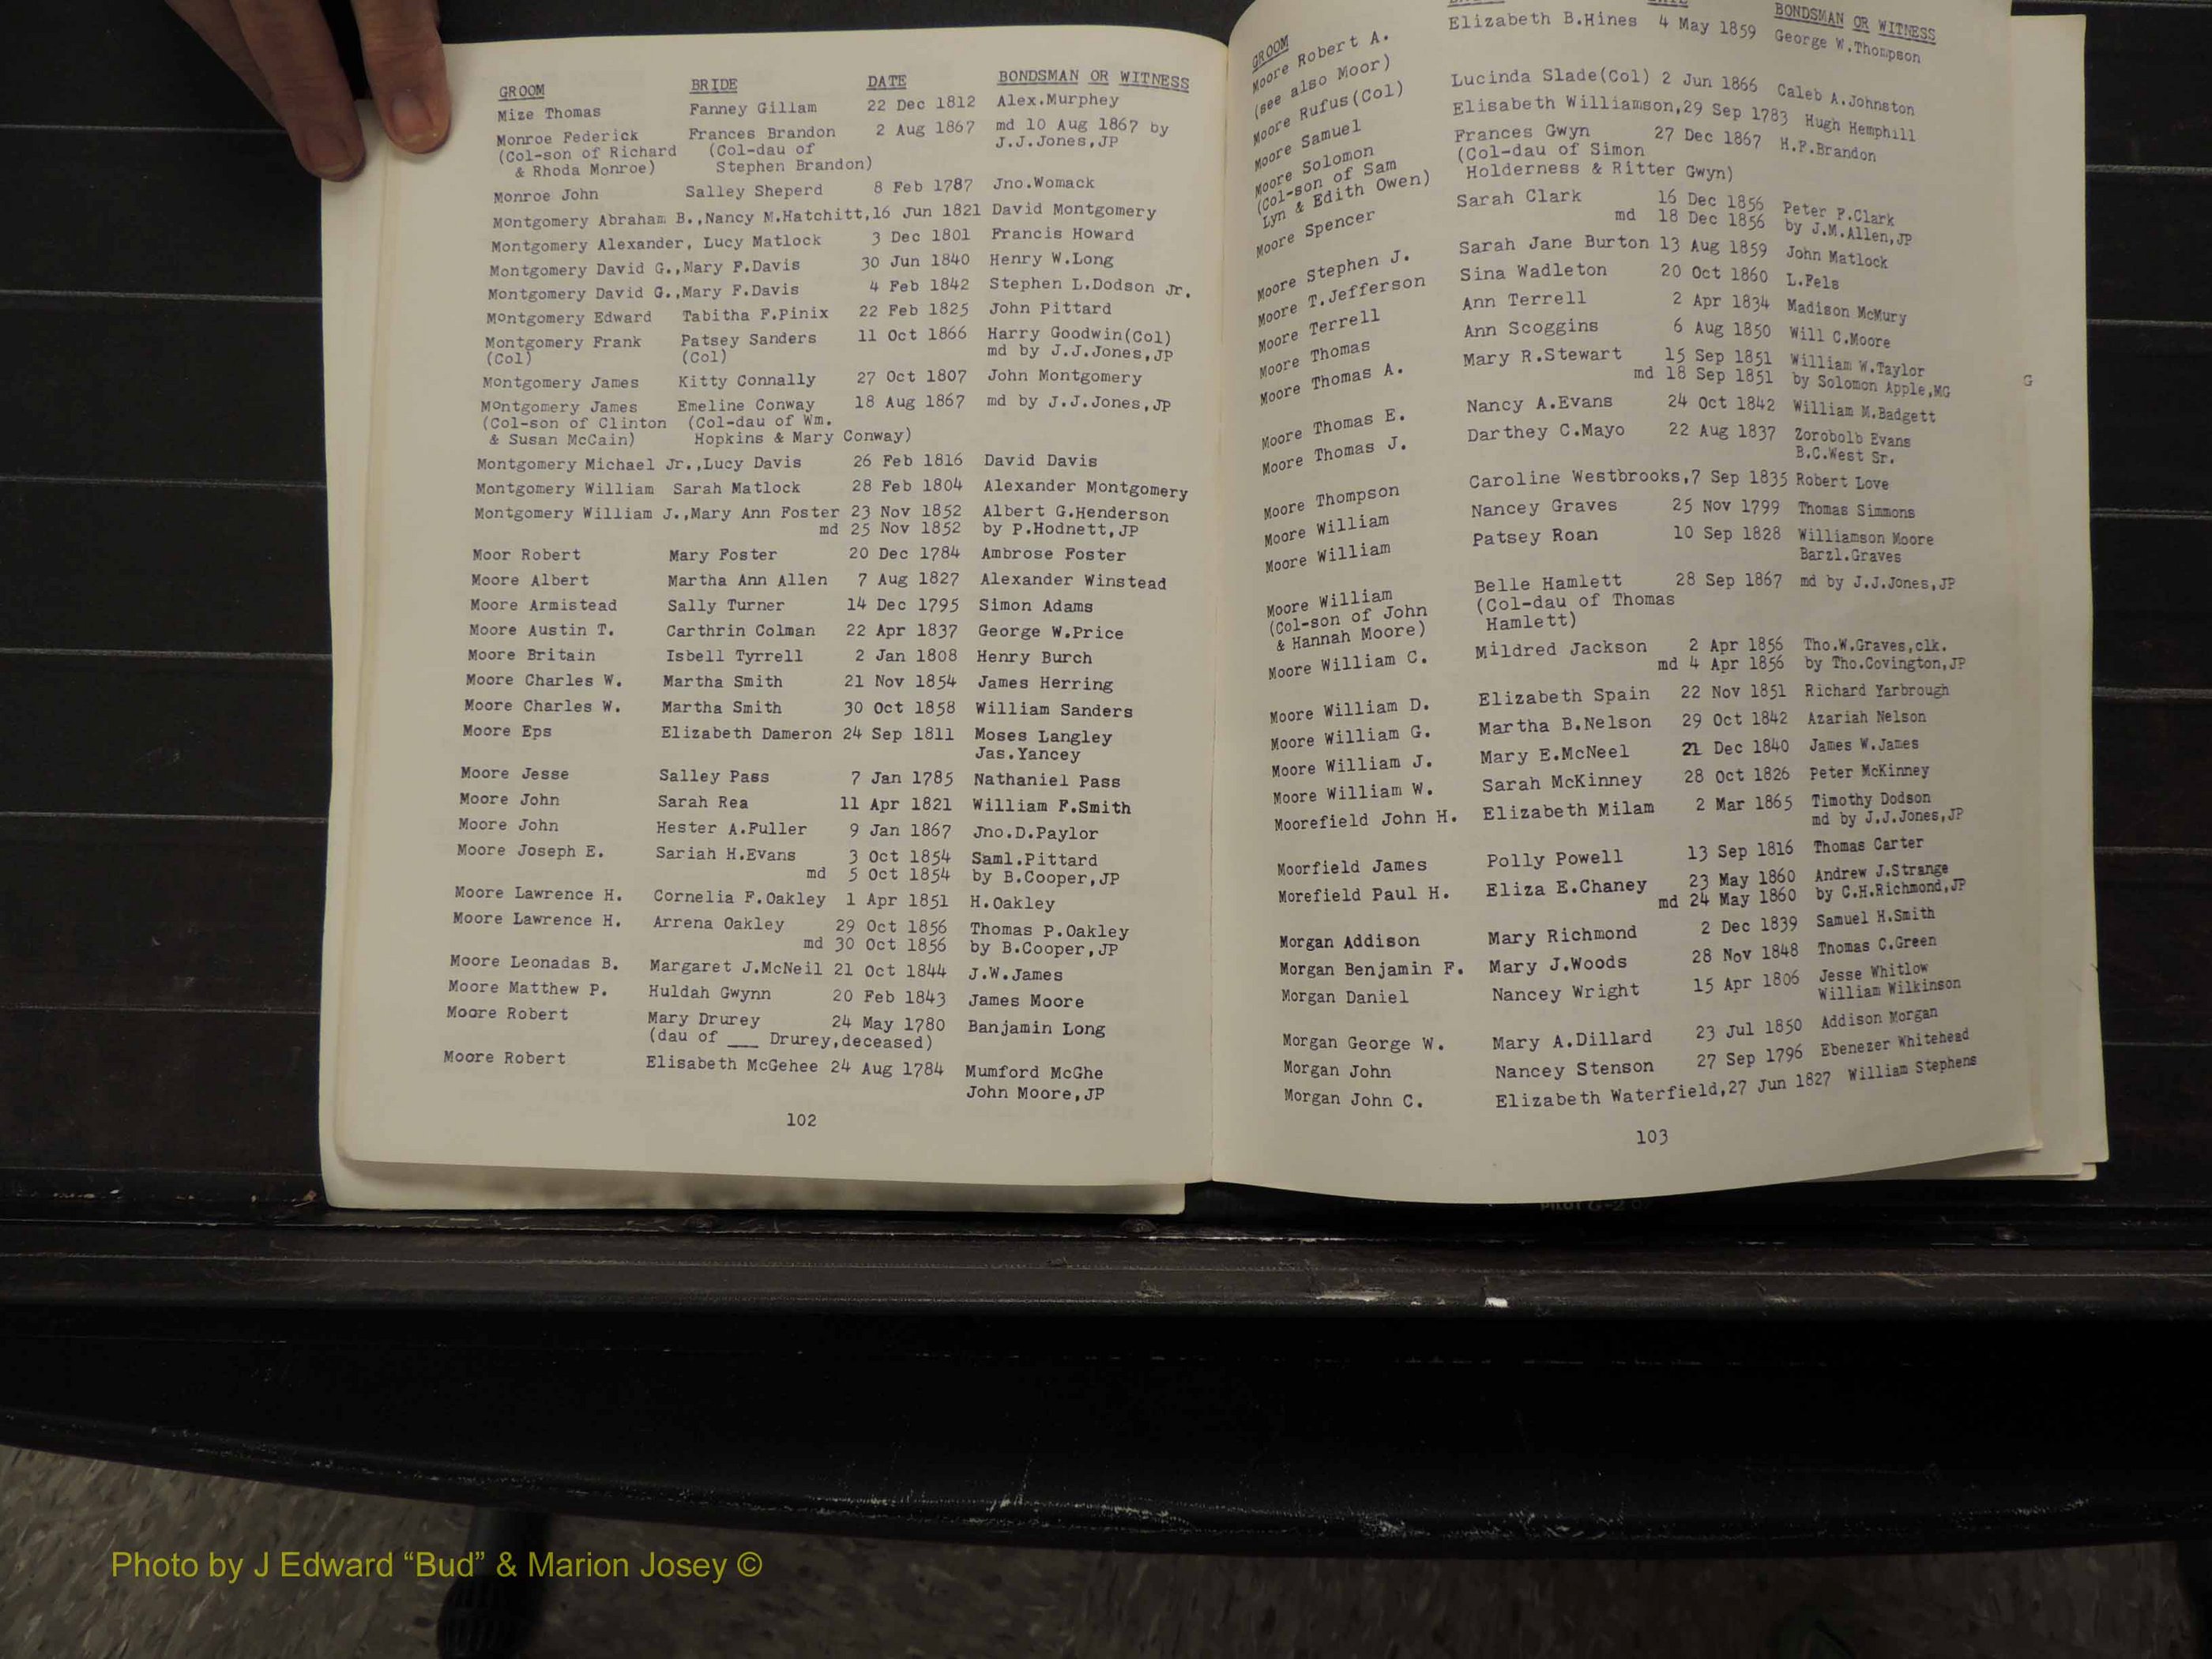 GROOM BRIDE DATE BONDSMAN OR WITNESS
Mize Thomas Fanney Gillam 22 Dec 1812 Alex.Murphey
Monroe Federick Frances Brandon 2 Aug 1867 md 10 Aug 1867 by
(Col-son of Richard (Col-dau of J.J.Jones,JP
& Rhoda Monroe) Stephen Brandon)
Monroe John Salley Sheperd 8 Feb 1787 Jno.Womack
Montgomery Abraham B.,Nancy M.Hatchitt,16 Jun 1821 David Montgomery
Montgomery Alexander, Lucy Matlock 3 Dec 1801 Francis Howard
Montgomery David G.,Mary F.Davis 30 Jun 1840 Henry W.Long
Montgomery David G.,Mary F.Davis 4 Feb 1842 Stephen L.Dodson Jr.
Montgomery Edward Tabitha F.Pinix 22 Feb 1825 John Pittard
Montgomery Frank Patsey Sanders 11 Oct 1866 Harry Goodwin(Col)
(Col) (Col) md by J.J.Jones,JP
Montgomery James Kitty Connally 27 Oct 1807 John Montgomery
Montgomery James Emeline Conway 18 Aug 1867 md by J.J.Jones,JP
(Col-son of Clinton (Col-dau of Wm.
& Susan McCain) Hopkins & Mary Conway)
Montgomery Michael Jr.,Lucy Davis 26 Feb 1816 David Davis
Montgomery William Sarah Matlock 28 Feb 1804 Alexander Montgomery
Montgomery William J.,Mary Ann Foster 23 Nov 1852 Albert G.Henderson
md 25 Nov 1852 by P.Hodnett,JP
Moor Robert Mary Foster 20 Dec 1784 Ambrose Foster
Moore Albert Martha Ann Allen 7 Aug 1827 Alexander Winstead
Moore Armistead Sally Turner 14 Dec 1795 Simon Adams
Moore Austin T. Carthrin Colman 22 Apr 1837 George W.Price
Moore Britain Isbell Tyrrell 2 Jan 1808 Henry Burch
Moore Charles W. Martha Smith 21 Nov 1854 James Herring
Moore Charles W. Martha Smith 30 Oct 1858 William Sanders
Moore Eps Elizabeth Dameron 24 Sep 1811 Moses Langley
Jas.Yancey
Moore Jesse Salley Pass 7 Jan 1785 Nathaniel Pass
Moore John Sarah Rea 11 Apr 1821 William F.Smith
Moore John Hester A.Fuller 9 Jan 1867 Jno.D.Paylor
Moore Joseph E. Sariah H.Evans 3 Oct 1854 Saml.Pittard
md 5 Oct 1854 by B.Cooper,JP
Moore Lawrence H. Cornelia F.Oakley 1 Apr 1851 H.Oakley
Moore Lawrence H. Arrena Oakley 29 Oct 1856 Thomas P.Oakley
md 30 Oct 1856 by B.Cooper,JP
Moore Leonadas B. Margaret J.McNeil 21 Oct 1844 J.W.James
Moore Matthew P. Huldah Gwynn 20 Feb 1843 James Moore
Moore Robert Mary Drurey 24 May 1780 Banjamin Long
(dau of ___ Drurey,deceased)
Moore Robert Elisabeth McGehee 24 Aug 1784 Mumford McGhe
John Moore,JP
102
GROOM BONDSMAN OR WITNESS
Moore Robert A. Elizabeth B.Hines 4 May 1859 George W.Thompson
(see also Moor)
Moore Rufus(Col) Lucinda Slade(Col) 2 Jun 1866 Caleb A.Johnston
Moore Samuel Elisabeth Williamson,29 Sep 1783 Hugh Hemphill
Moore Solomon Frances Gwyn 27 Dec 1867 H.F.Brandon
(Col-son of Sam (Col-dau of Simon
Lyn & Edith Owen) Holderness & Ritter Gwyn)
Moore Spencer Sarah Clark 16 Dec 1856 Peter P.Clark
md 18 Dec 1856 by J.M.Allen,JP
Moore Stephen J. Sarah Jane Burton 13 Aug 1859 John Matlock
Moore T.Jefferson Sina Wadleton 20 Oct 1860 L.Fels
Moore Terrell Ann Terrell 2 Apr 1834 Madison McMury
Moore Thomas Ann Scoggins 6 Aug 1850 Will C.Moore
Moore Thomas A. Mary R.Stewart 15 Sep 1851 William W.Taylor
md 18 Sep 1851 by Solomon Apple,MG
Moore Thomas E. Nancy A.Evans 24 Oct 1842 William M.Badgett
Moore Thomas J. Darthey C.Mayo 22 Aug 1837 Zorobolb Evans
B.C.West Sr.
Moore Thompson Caroline Westbrooks,7 Sep 1835 Robert Love
Moore William Nancey Graves 25 Nov 1799 Thomas Simmons
Moore William Patsey Roan 10 Sep 1828 Williamson Moore
Barzl.Graves
Moore William Belle Hamlett 28 Sep 1867 md by J.J.Jones,JP
(Col-son of John (Col-dau of Thomas
& Hannah Moore) Hamlett)
Moore William C. Mildred Jackson 2 Apr 1856 Tho.W.Graves,clk.
md 4 Apr 1856 by Tho.Covington,JP
Moore William D. Elizabeth Spain 22 Nov 1851 Richard Yarbrough
Moore William G. Martha B.Nelson 29 Oct 1842 Azariah Nelson
Moore William J. Mary E.McNeel 21 Dec 1840 James W.James
Moore William W. Sarah McKinney 28 Oct 1826 Peter McKinney
Moorefield John H. Elizabeth Milam 2 Mar 1865 Timothy Dodson
md by J.J.Jones,JP
Moorfield James Polly Powell 13 Sep 1816 Thomas Carter
Morefield Paul H. Eliza E.Chaney 23 May 1860 Andrew J.Strange
md 24 May 1860 by C.H.Richmond,JP
Morgan Addison Mary Richmond 2 Dec 1839 Samuel H.Smith
Morgan Benjamin F. Mary J.Woods 28 Nov 1848 Thomas C.Green
Morgan Daniel Nancey Wright 15 Apr 1806 Jesse Whitlow
William Wilkinson
Morgan George W. Mary A.Dillard 23 Jul 1850 Addison Morgan
Morgan John Nancey Stenson 27 Sep 1796 Ebenezer Whitehead
Morgan John C. Elizabeth Waterfield,27 Jun 1827 William Stephens
103
G
PILOT G-2
Photo by J Edward “Bud” & Marion Josey ©